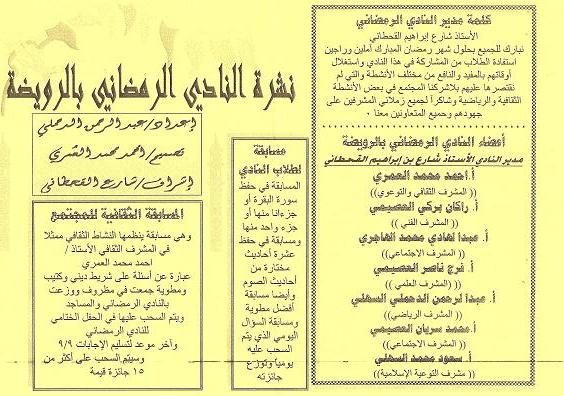 كلمة مدير النادي الرمضاني
الأستاذ شارع إبراهيم القحطاني
نبارك للجميع بحلول شهر رمضان المبارك أملين وراجين
استفادة الطلاب من المشاركة في هذا النادي واستغلال
أوقاتهم بالمفيد والنافع من مختلف الأنشطة والتي لم
نقتصرها عليهم بلاشركنا المجتمع في بعض الأنشطة
الثقافية والرياضية وشاكراً لجميع زملائي المشرفين على
جهودهم وجميع المتعاونين معنا .
أعضاء النادي الرمضاني بالرويضة
مدير النادي الأستاذ شارع بن إبراهيم القحطاني
أ. احمد محمد العمري
(( المشرف الثقافي والتوعوي ))
أ. راكان بركي العصيمي
(( المشرف الفني ))
أ. عبدا لهادي محمد الهاجري
(( المشرف الاجتماعي ))
أ. فرج ناصر العصيمي
(( المشرف العلمي ))
أ. عبدا لرحمن الدحملي السهلي
(( المشرف الرياضي ))
أ. محمد سريان العصيمي
(( المشرف الاجتماعي ))
أ. سعود محمد السهلي
(( مشرف التوعية الإسلامية ))
نشرة النادي الرمضاني بالرويضة
إعداد/عبدالرحمن الدحملي
تصميم/احمد محمد العمري
إشراف/شارع القحطاني
مسابقة
لطلاب النادي
المسابقة في حفظ
سورة البقرة أو
جزءانا منها أو
جزء واحد منها
ومسابقة في حفظ
عشرة أحاديث
مختارة من
أحاديث الصوم
وأيضا مسابقة
أفضل مطوية
ومسابقة السؤال
اليومي الذي يتم
السحب عليه
يومياً وتوزع
جائزته
المسابقة الثقافية للمجتمع
وهي مسابقة ينظمها النشاط الثقافي ممثلا
في المشرف الثقافي الأستاذ /
احمد محمد العمري
عبارة عن أسئلة على شريط ديني وكتيب
ومطوية جمعت في مظروف ووزعت
بالنادي الرمضاني والمساجد
ويتم السحب عليها في الحفل الختامي
للنادي الرمضاني
وأخر موعد لتسليم الإجابات ٩/٩
وسيتم السحب على أكثر من
١٥ جائزة قيمة